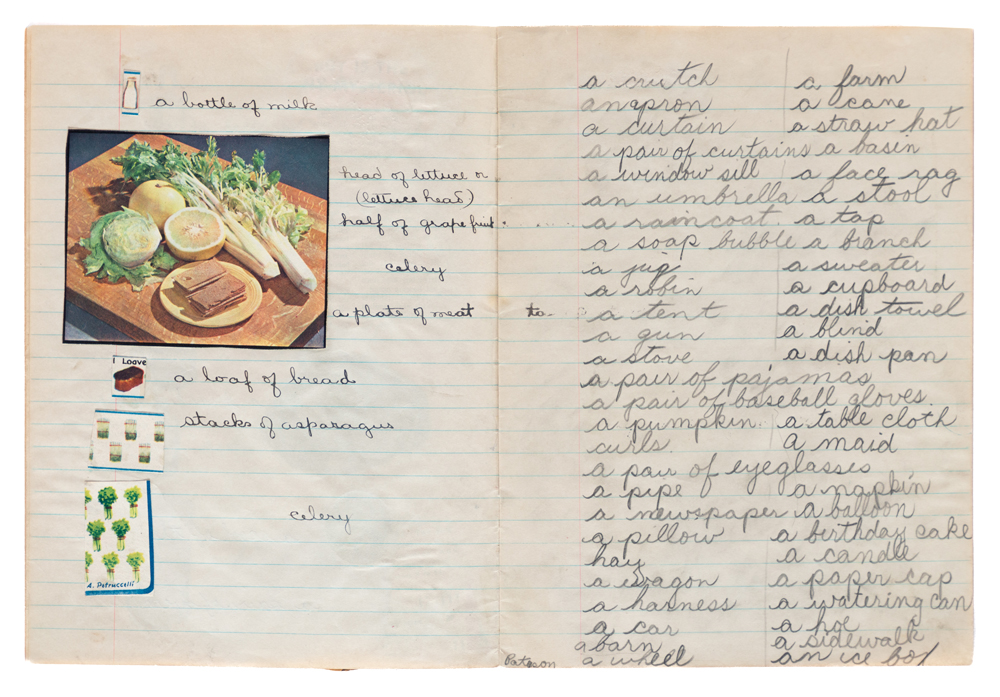 a bottle of milk
head of lettuce or
(lettuce head)
half of grapefruit
celery
a plate of meat
1 Loave
a loaf of bread
stacks of asparagus
celery
A. Petruccelli
to
a crutch a farm
an apron a cane
a curtain a straw hat
a pair of curtains a basin
a window sill a face rag
an umbrella a stool
a raincoat a tap
a soap bubble a branch
a jug a sweater
a robin a cupboard
a tent a dish towel
a gun a blind
a stove a dish pan
a pair of pajamas
a pair of baseball gloves.
a pumpkin. a table cloth
curls. a maid
a pair of eyeglasses
a pipe a napkin
a newspaper a balloon
a pillow a birthday cake
hay a candle
a wagon a paper cap
a harness a watering can
a car a hoe
a barn a sidewalk
a wheel an ice box